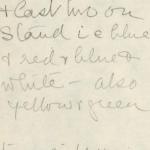 & last two on
stand i e blue
& red & blue &
white - also
yellow & green